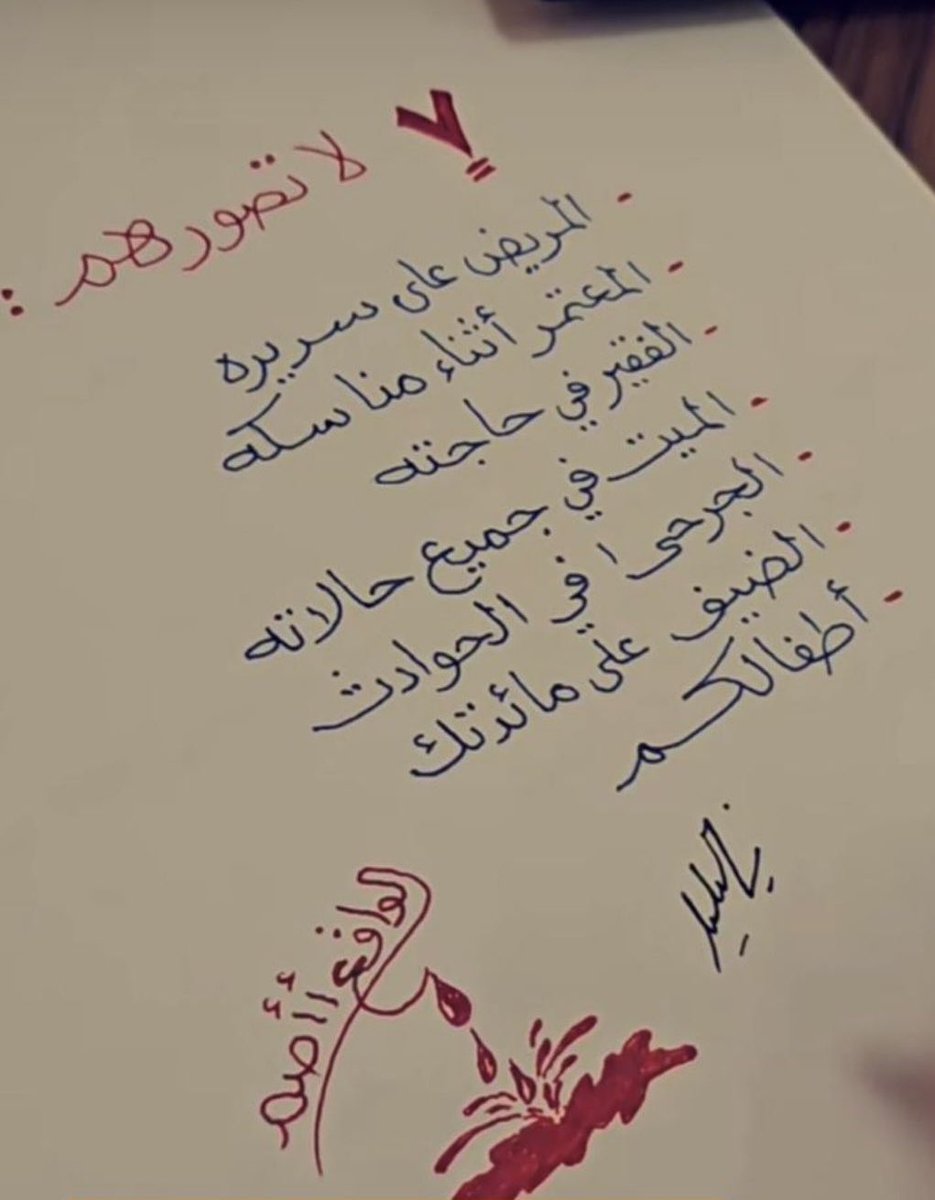 ٧ لا تصورهم :
- المريض على سريره
- المعتمر أثناء مناسكه
- الفقير في حاجته
- الميت في جميع حالاته
- الجرحى ا في الحوادث
- الضيف على مائدتك
- أطفالكم
الواقع أأصه